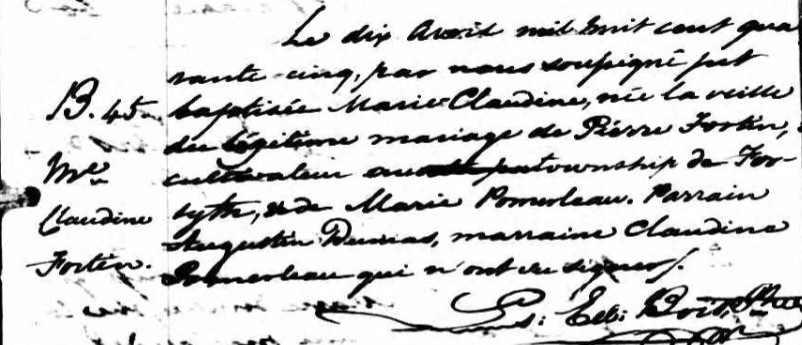 Le dix Avril mil huit cent qua
rante-cinq, par nous soussigné fut
B. 45
baptisée Marie-Claudine, née la veille
du légitime mariage de Pierre Fortin,
Mie
cultivateur au township de For-
Claudine
syth, & de Marie Pomerleau. Parrain
Augustin Dumas, marraine Claudine
Fortin.
Pomerleau qui n'ont su signer.